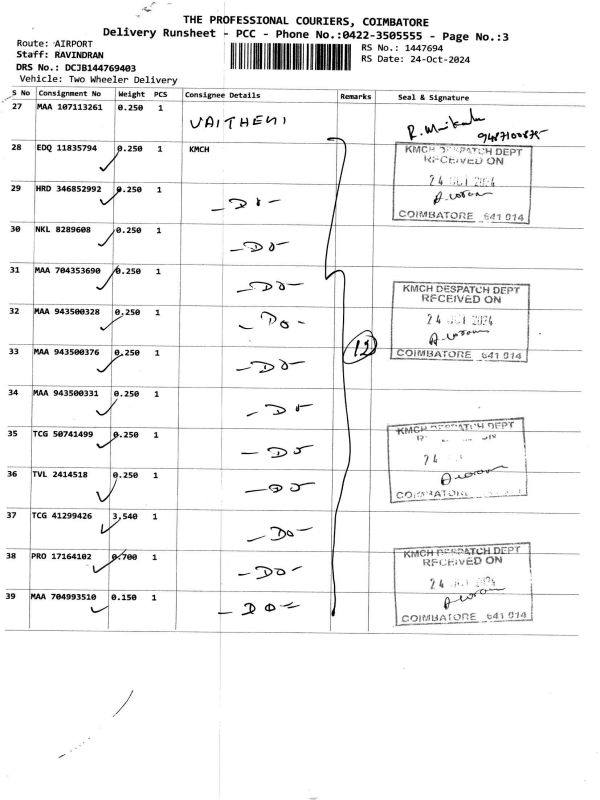 THE PROFESSIONAL COURIERS, COIMBATORE
Delivery Runsheet - PCC - Phone No.:0422-3505555 - Page No.:3
Route: AIRPORT
Staff: RAVINDRAN
DRS No.: DCJB144769403
Vehicle: Two Wheeler Delivery
RS No.: 1447694
RS Date: 24-Oct-2024
S No Consignment No Weight PCS Consignee Details Remarks Seal & Signature
27 MAA 107113261 0.250 1 VAITHEHI
28 EDQ 11835794 0.250 1 KMCH
KMCH DESPATCH DEPT
RECEIVED ON
24 OCT 2024
COIMBATORE 641 014
29 HRD 346852992 0.250 1 -DO-
30 NKL 8289608 0.250 1 -DO-
31 MAA 704353690 0.250 1 -DO-
KMCH DESPATCH DEPT
RECEIVED ON
24 OCT 2024
COIMBATORE 641 014
32 MAA 943500328 0.250 1 -DO-
12
33 MAA 943500376 0.250 1 -DO-
34 MAA 943500331 0.250 1 -DO-
35 TCG 50741499 0.250 1 -DO-
KMCH DESPATCH DEPT
24
COIMBATORE
36 TVL 2414518 0.250 1 -DO-
37 TCG 41299426 3.540 1 -DO-
38 PRO 17164102 0.700 1 -DO-
KMCH DESPATCH DEPT
RECEIVED ON
24 OCT 2024
COIMBATORE 641 014
39 MAA 704993510 0.150 1 -DO-